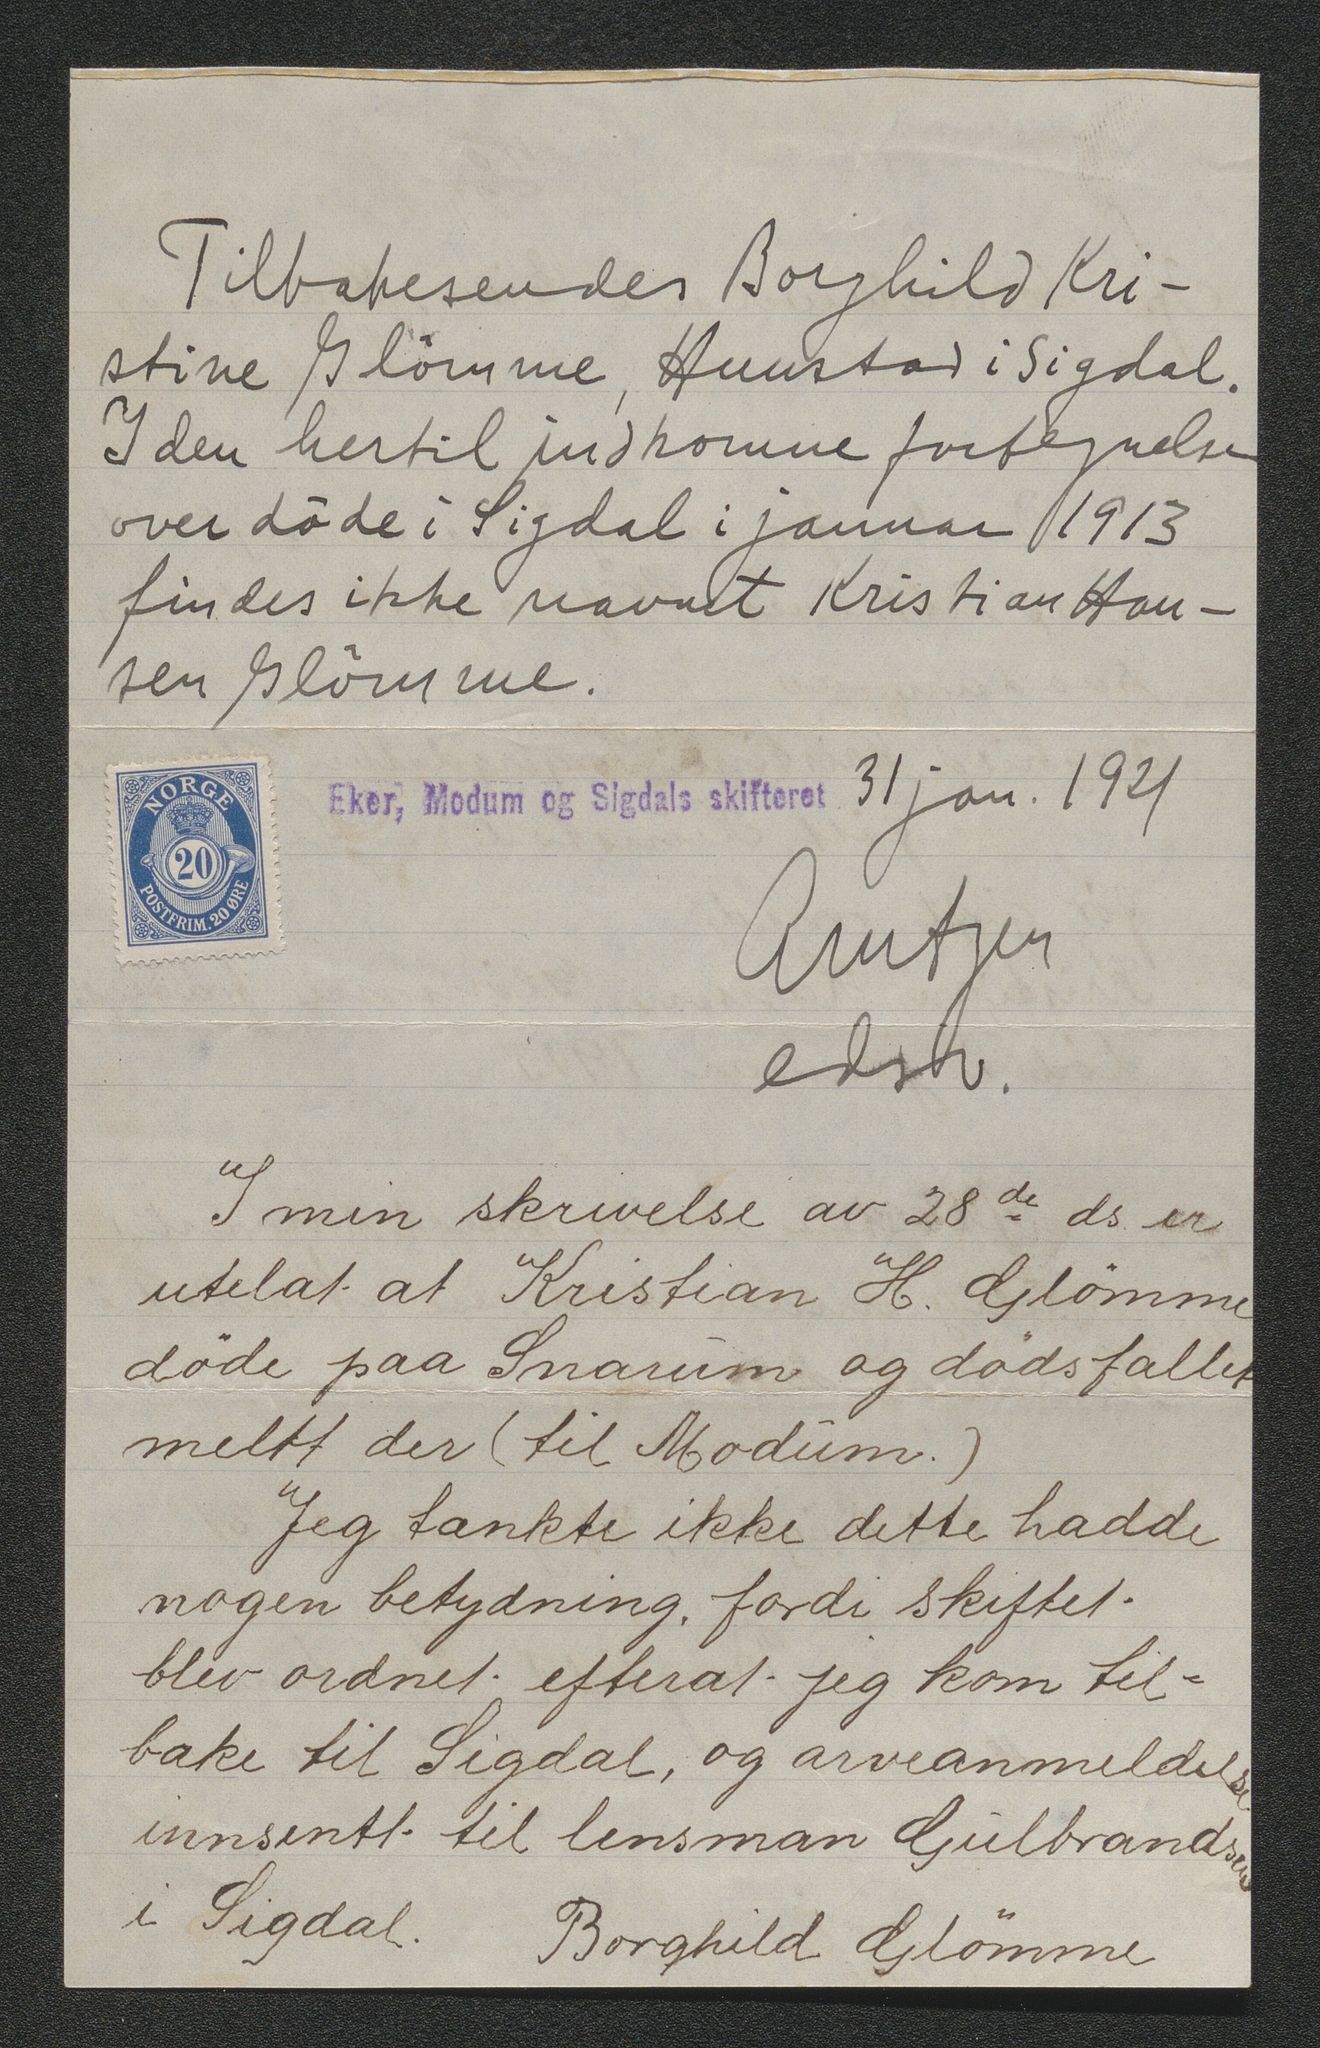 Tilbakesendes Borghild Kri-
stine Glömme, Hunstad i Sigdal.
I den hertil indkomne fortegnelse
over döde i Sigdal i januar 1913
findes ikke navnet Kristian Han-
sen Glömme.
NORGE
20
POSTFRIM. 20 ØRE
Eker, Modum og Sigdals skifteret 31 jan. 1921
Arntzen
edsv.
I min skrivelse av 28de ds er
utelat at Kristian H. Glömme
döde paa Snarum og dödsfallet
meltt der (til Modum.)
Jeg tænkte ikke dette hadde
nogen betydning, fordi skiftet
blev ordnet efterat jeg kom til-
bake til Sigdal, og arveanmeldelse
innsentt til lensman Gulbrandsen
i Sigdal. Borghild Glömme